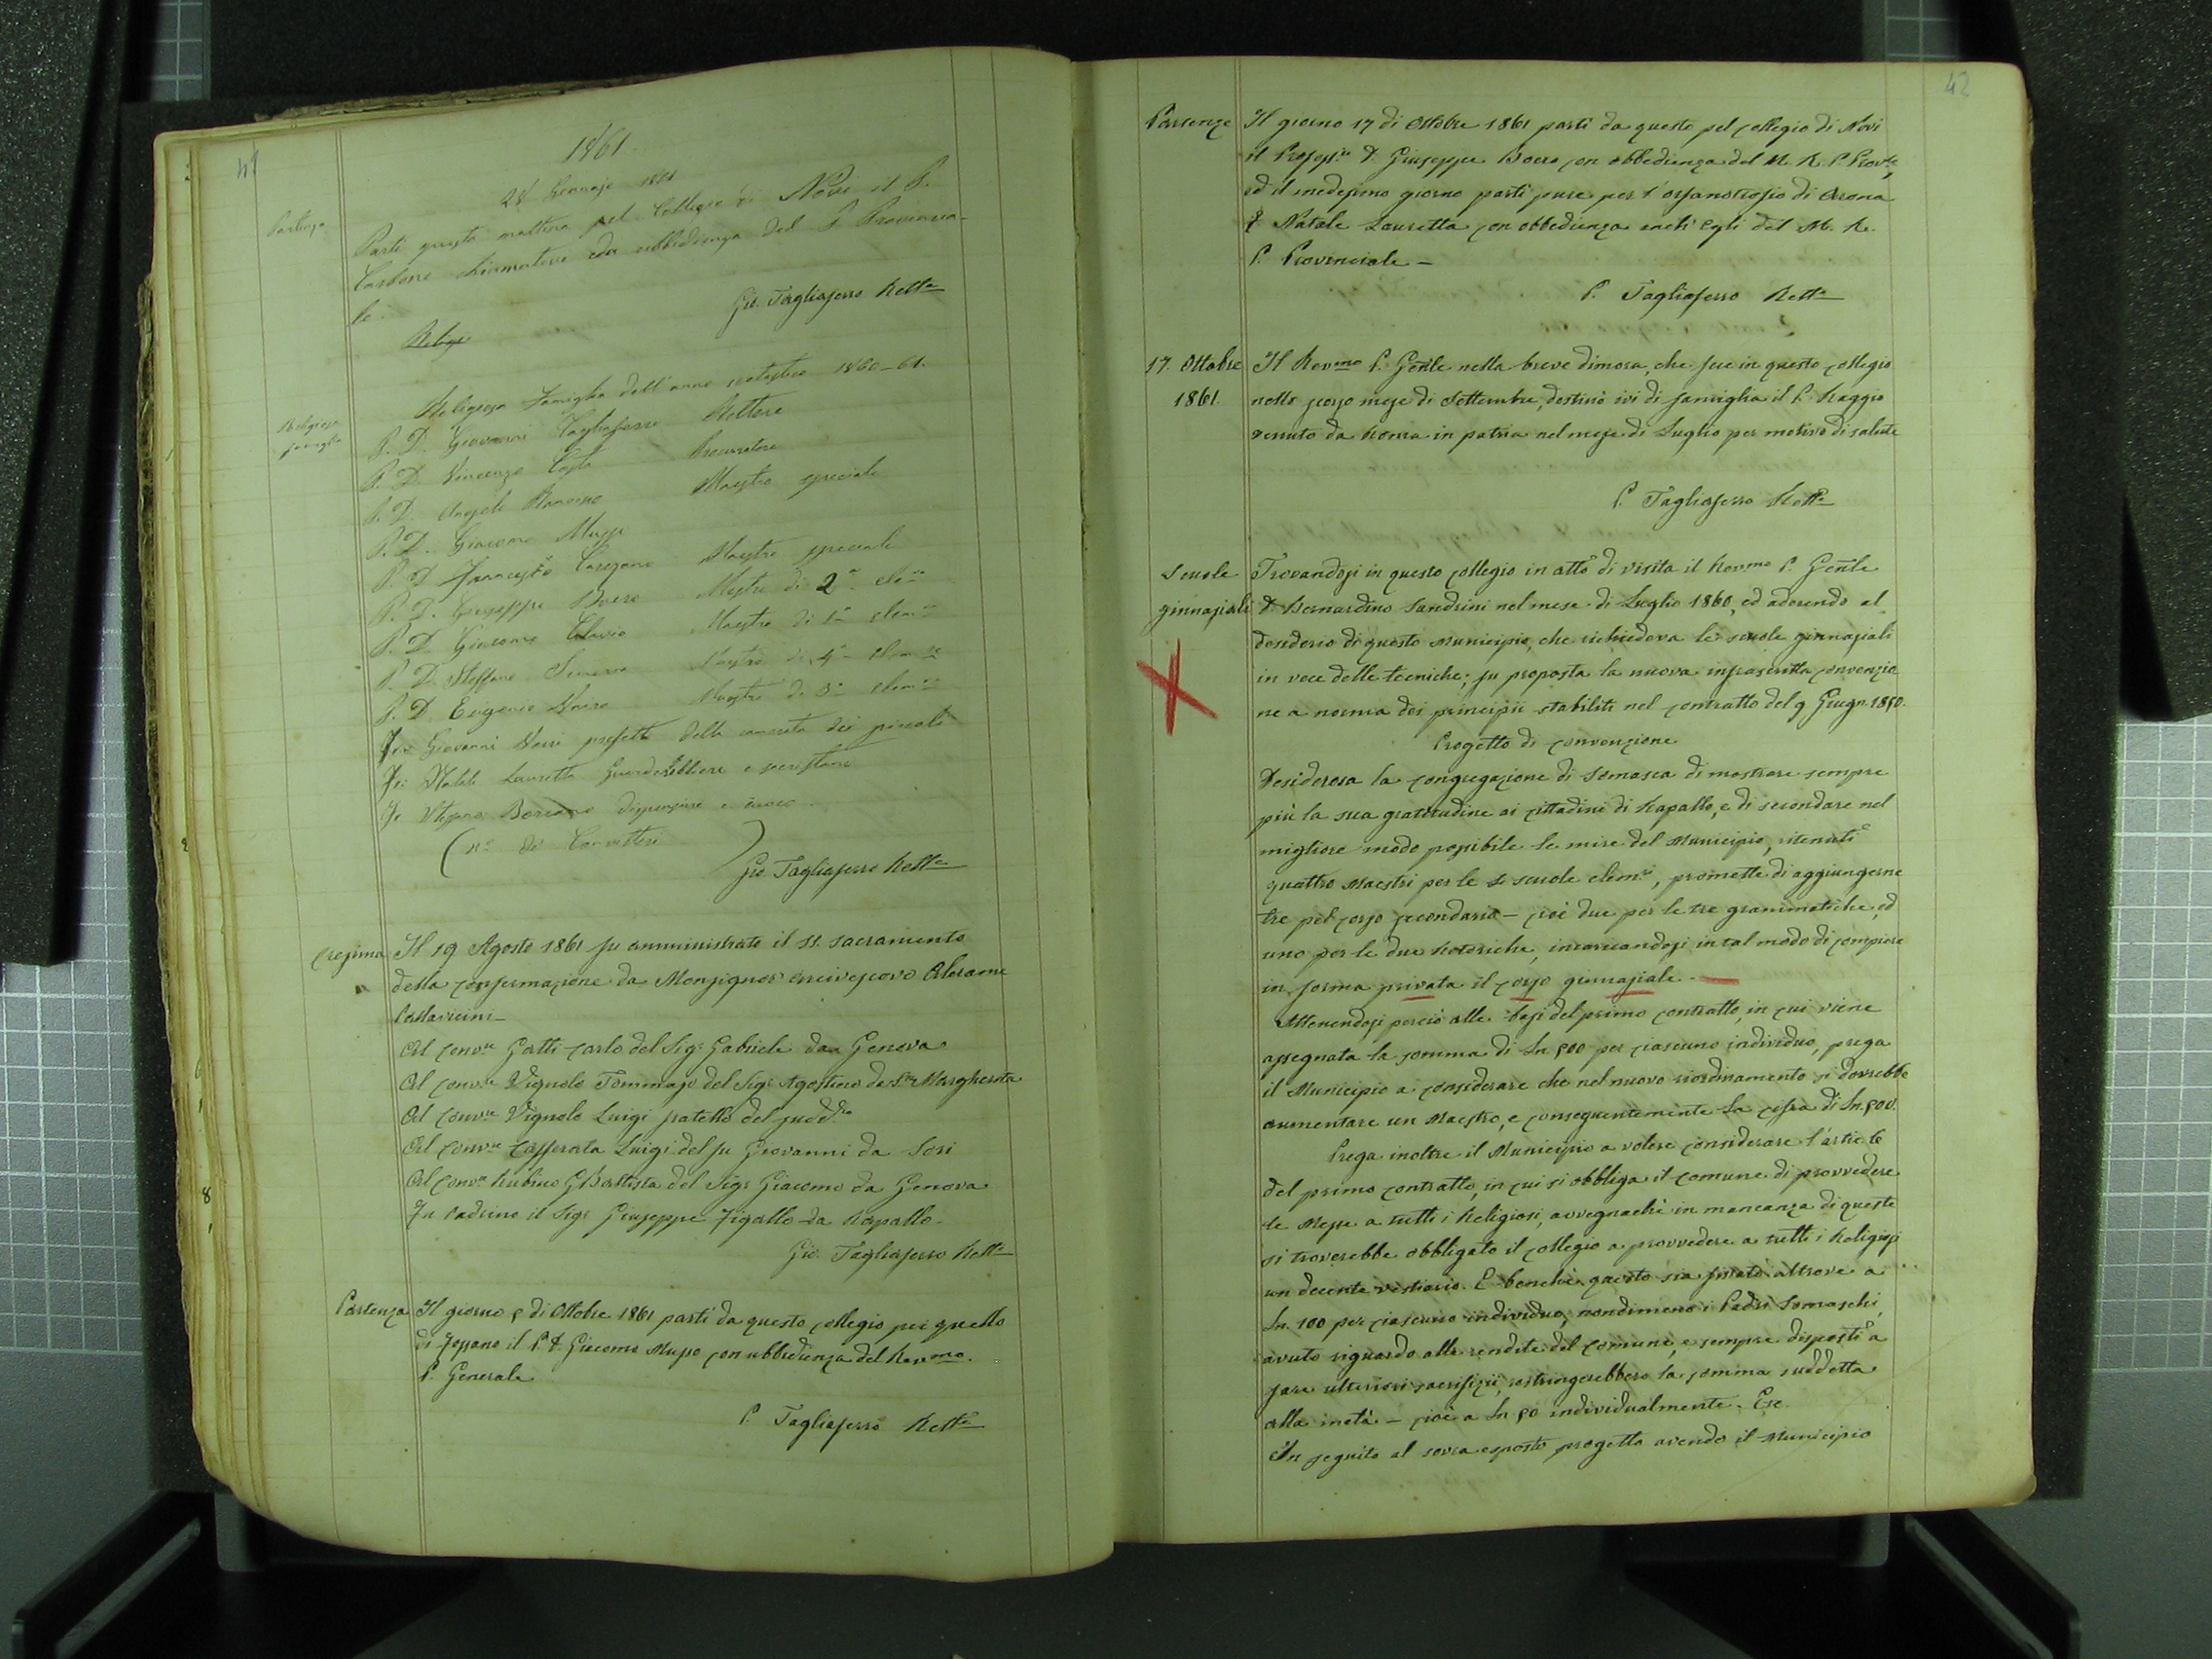 41
1861
28 Gennajo 1861
Partenza
Partì questa mattina pel Collegio di Novi il P.
Carbone chiamatovi da ubbidienza del P. Provincia-
le.
Gio. Tagliaferro Rett.e
Relig
Religiosa famiglia
Religiosa Famiglia dell'anno scolastico 1860-61.
P. D. Giovanni Tagliaferro Rettore
P. D. Vincenzo Costa Procuratore
P. D. Angelo Maestro speciale
P. D. Giacomo
P. D. Francesco Maestro speciale
P. D. Giuseppe Boero Mestro di 2.a elem.re
P. D. Giacomo Maestro di 1.a elem.re
P. D. Steffano Maestro di 4.a elem.re
P. D. Eugenio Maestro di 3.a elem.re
Fr. Giovanni prefetto della camerata dei piccoli
Fr. Natale Lauretta Guardarobbiere e sacristano
Fr. dispensiere e cuoco.
(n.o di Convittori )
Gio. Tagliaferro Rett.e
Cresima
Il 19 Agosto 1861 fu amministrato il SS. Sacramento
della confermazione da Monsignor Arcivescovo Alerame
Pallavicini_
Al conv.re Gatti Carlo del Sig.r Gabriele da Genova
Al conv.re Vignolo Tommaso del Sig.r Agostino da S.ta Margherita
Al conv.re Vignolo Luigi fratello del sudd.to
Al conv.re Cafferata Luigi del fu Giovanni da Sori
Al conv.re Rubino G Battista del Sig.r Giacomo da Genova
Fu Padrino il Sig.r Giuseppe Figallo da Rapallo.
Gio. Tagliaferro Rett.e
Partenza
Il giorno 5 di Ottobre 1861 partì da questo collegio per quello
di Fossano il P. D. Giacomo Musso con ubbidienza del Rev.mo
P. Generale
P. Tagliaferro Rett.e
42
Partenze
Il giorno 17 di Ottobre 1861 partì da questo pel collegio di Novi
il Profess.re D. Giuseppe Boero con obbedienza del M. R. P. Prov.le,
ed il medesimo giorno partì pure per l'orfanotrofio di Arona
F. Natale Lauretta con obbedienza anch'egli del M. R.
P. Provinciale _
P. Tagliaferro Rett.e
17. Ottobre
1861.
Il Rev.mo P. Gen.le nella breve dimora, che fece in questo collegio
nello scorso mese di Settembre, destinò ivi di famiglia il P. Raggio
venuto da Roma in patria nel mese di Luglio per motivo di salute
P. Tagliaferro Rett.e
Scuole
ginnasiali
Trovandosi in questo collegio in atto di visita il Rev.mo P. Gen.le
D. Bernardino Sandrini nel mese di Luglio 1860, ed aderendo al
desiderio di questo Municipio, che richiedeva le scuole ginnasiali
in vece delle tecniche; fu proposta la nuova infrascritta convenzio
ne a norma dei principii stabiliti nel contratto del 9 Giugn. 1850.
Progetto di convenzione
Desiderosa la congregazione di Somasca di mostrare sempre
più la sua gratitudine ai cittadini di Rapallo, e di secondare nel
migliore modo possibile le mire del Municipio, ritenuti
quattro Maestri per le scuole elem.ri, promette di aggiungerne
tre pel corso secondario _ cioè due per le tre grammatiche, ed
uno per le due Retoriche, incaricandosi in tal modo di compiere
in forma privata il corso ginnasiale. _
Attenendosi perciò alle basi del primo contratto, in cui viene
assegnata la somma di Ln 500 per ciascuno individuo, prega
il Municipio a considerare che nel nuovo riordinamento si dovrebbe
aumentare un Maestro, e conseguentemente la cifra di Ln. 500.
Prega inoltre il Municipio a volere considerare l'articolo
del primo contratto, in cui si obbliga il comune di provvedere
le Messe a tutti i Religiosi, avvegnachè in mancanza di queste
si troverebbe obbligato il collegio a provvedere a tutti i Religiosi
un decente vestiario. E benchè questo sia fissato altrove a
Ln. 100 per ciascuno individuo, nondimeno i Padri Somaschi,
avuto riguardo alle rendite del comune, e sempre disposti a
fare ulteriori sacrifizii, restringerebbero la somma suddetta
alla metà _ cioè a Ln 50 individualmente. Ec.
In seguito al sovra esposto progetto avendo il Municipio